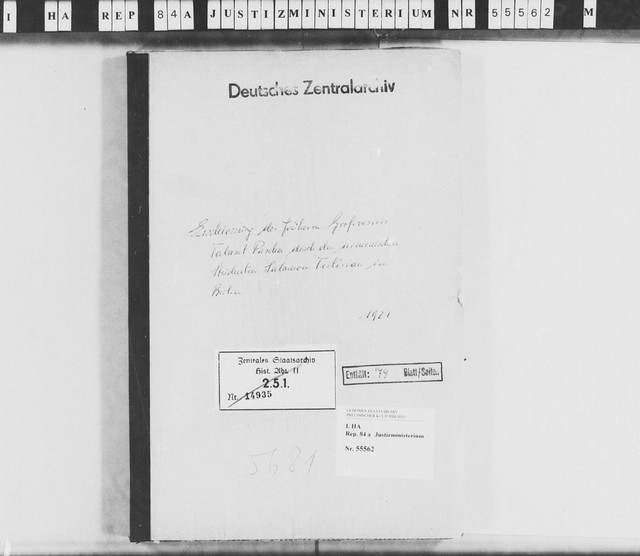 I HA REP 84A JUSTIZMINISTERIUM NR 55562 M
Deutsches Zentralarchiv
Erschießung des früheren Großvesirs
Talaat Pascha durch den armenischen
Studenten Salomon Teilirian in
Berlin
1921
Zentrales Staatsarchiv
Hist. Abt. II
2.5.1.
Nr. 14935
Enthält: 79 Blatt/Seiten
GEHEIMES STAATSARCHIV
PREUSSISCHER KULTURBESITZ
I. HA
Rep. 84 a Justizministerium
Nr. 55562
5681